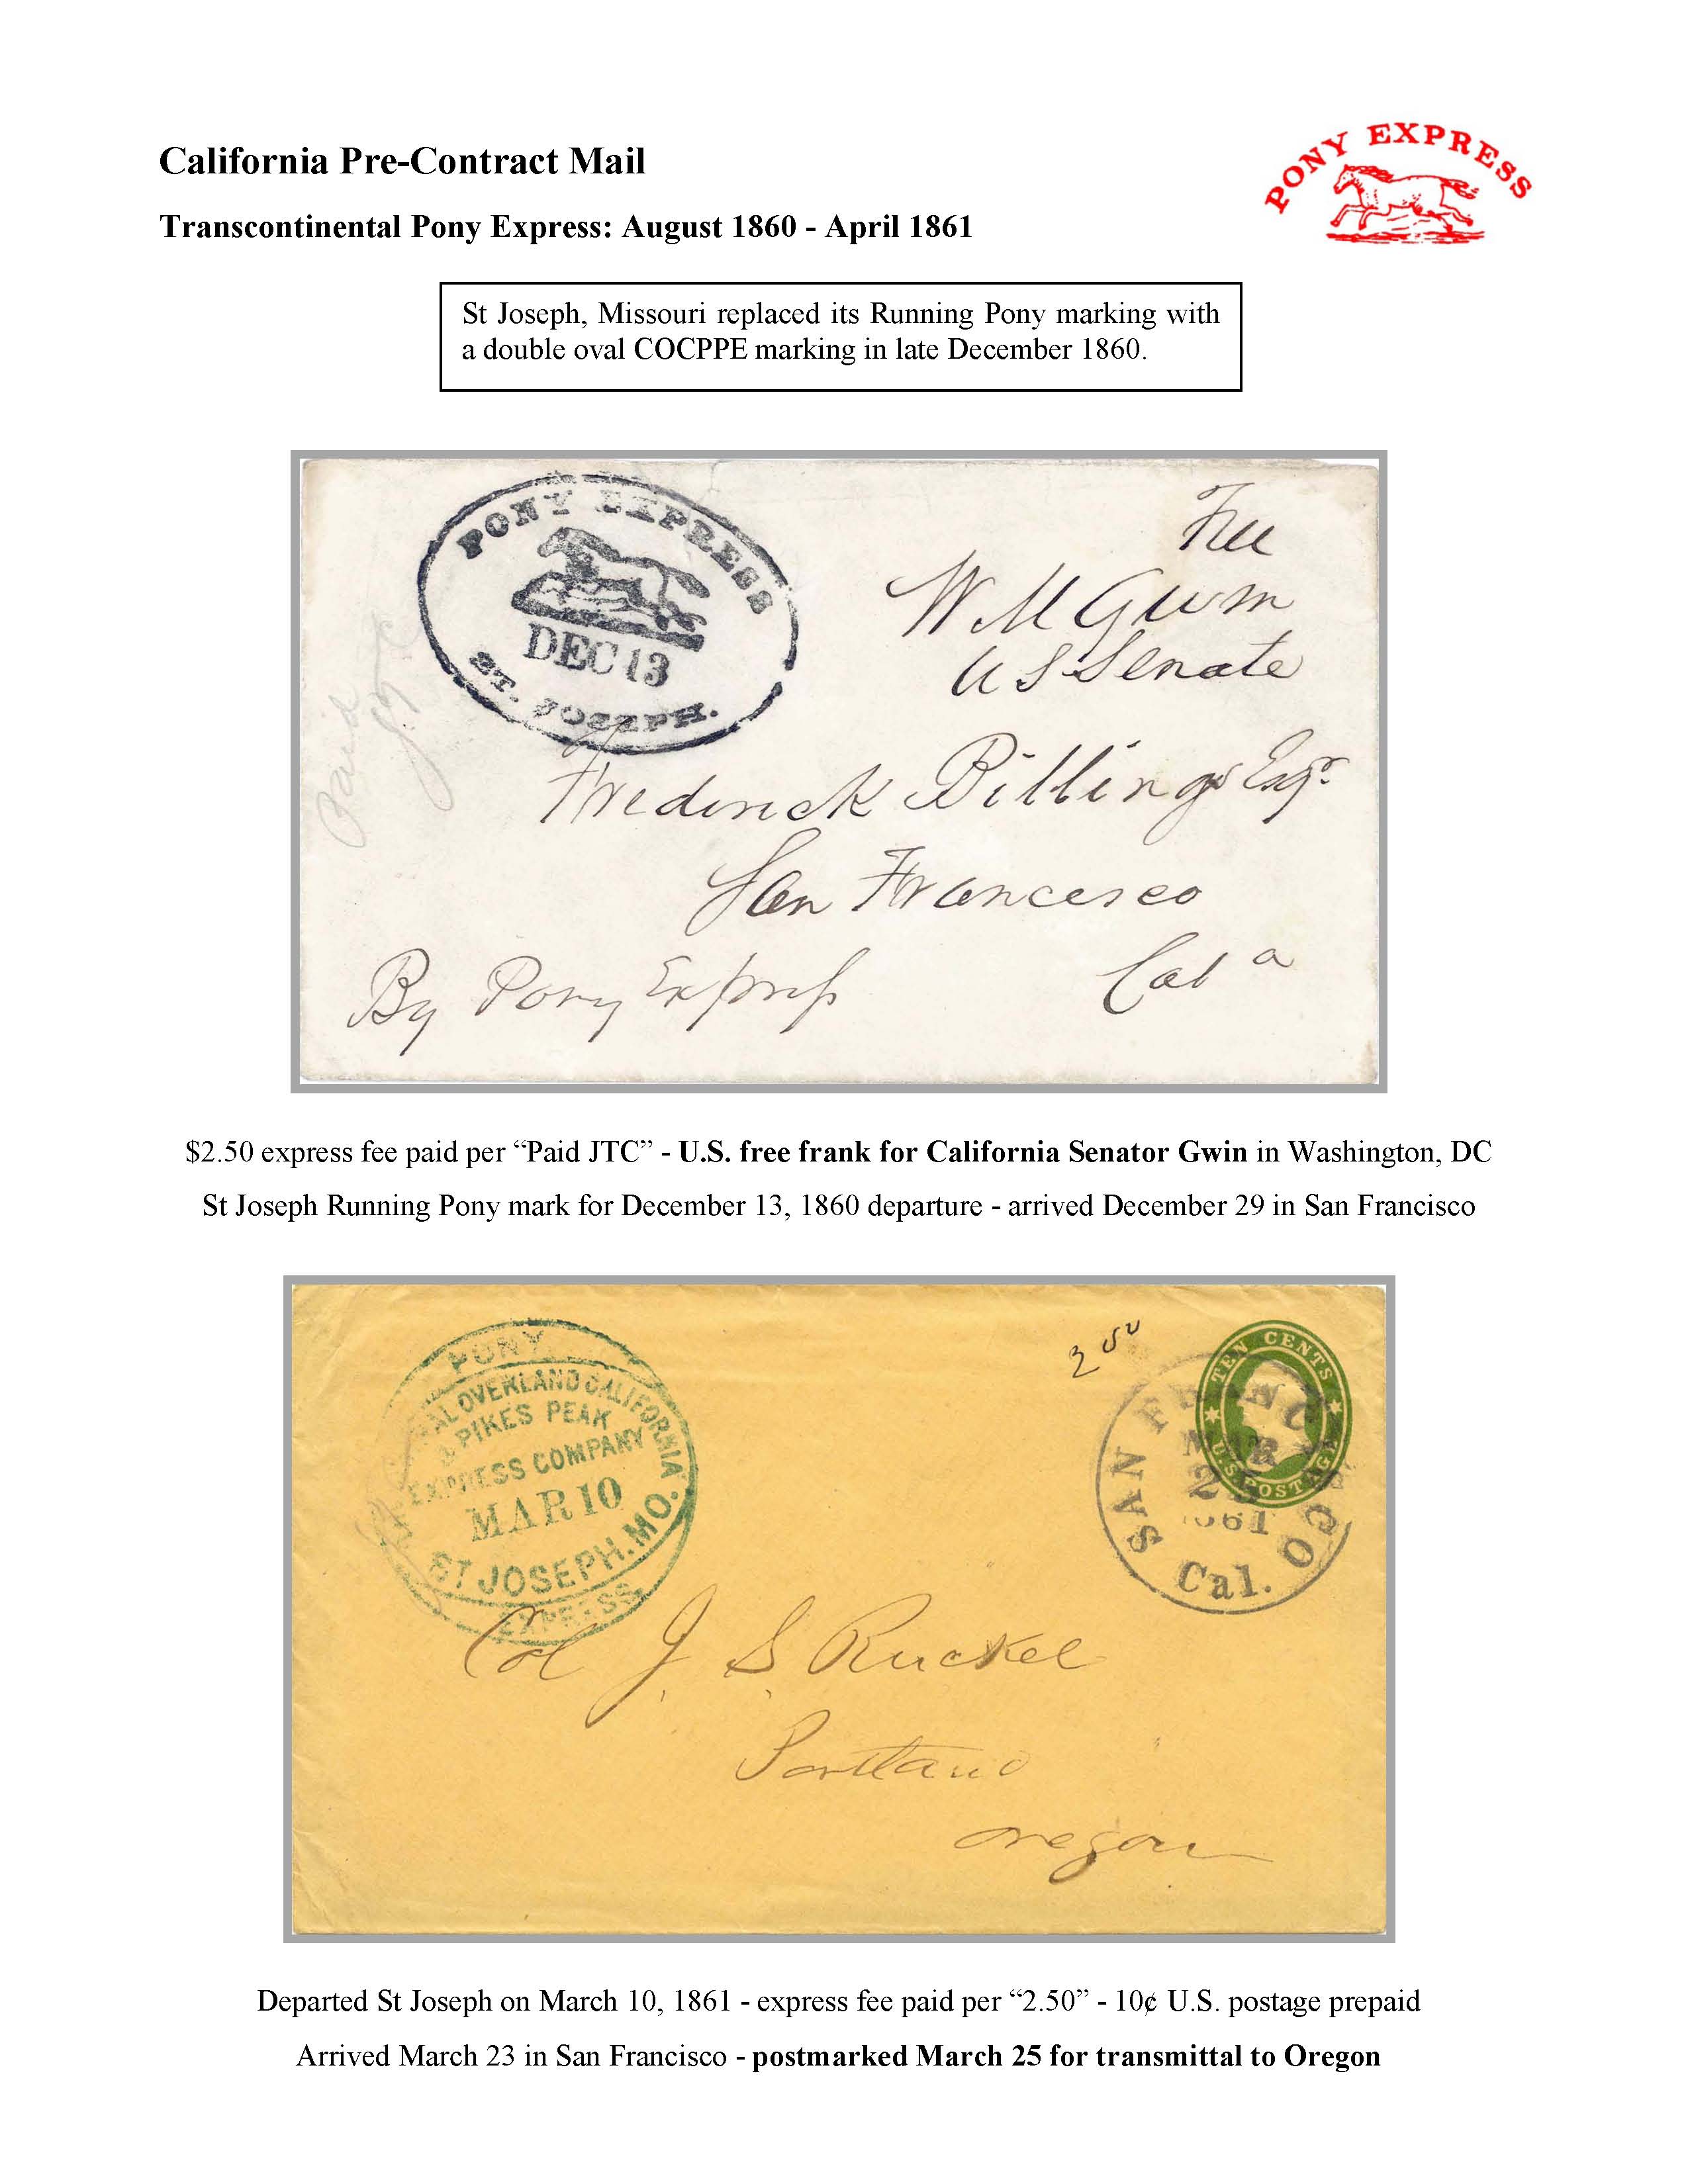 California Pre-Contract Mail
PONY EXPRESS
Transcontinental Pony Express: August 1860 - April 1861
St Joseph, Missouri replaced its Running Pony marking with
a double oval COCPPE marking in late December 1860.
PONY EXPRESS
DEC 13
ST. JOSEPH.
Paid
JTC
Free
W M Gwin
U S Senate
Frederick Billings Esqr.
San Francesco
Cala
By Pony Express
$2.50 express fee paid per “Paid JTC” - U.S. free frank for California Senator Gwin in Washington, DC
St Joseph Running Pony mark for December 13, 1860 departure - arrived December 29 in San Francisco
PONY
OVERLAND CALIFORNIA
& PIKES PEAK
EXPRESS COMPANY
MAR 10
ST JOSEPH. MO.
EXPRESS
2 50
TEN CENTS
U.S. POSTAGE
SAN FRANCISCO
MAR
25
1861
Cal.
Col J. S. Ruckel
Portland
Oregon
Departed St Joseph on March 10, 1861 - express fee paid per “2.50” - 10¢ U.S. postage prepaid
Arrived March 23 in San Francisco - postmarked March 25 for transmittal to Oregon